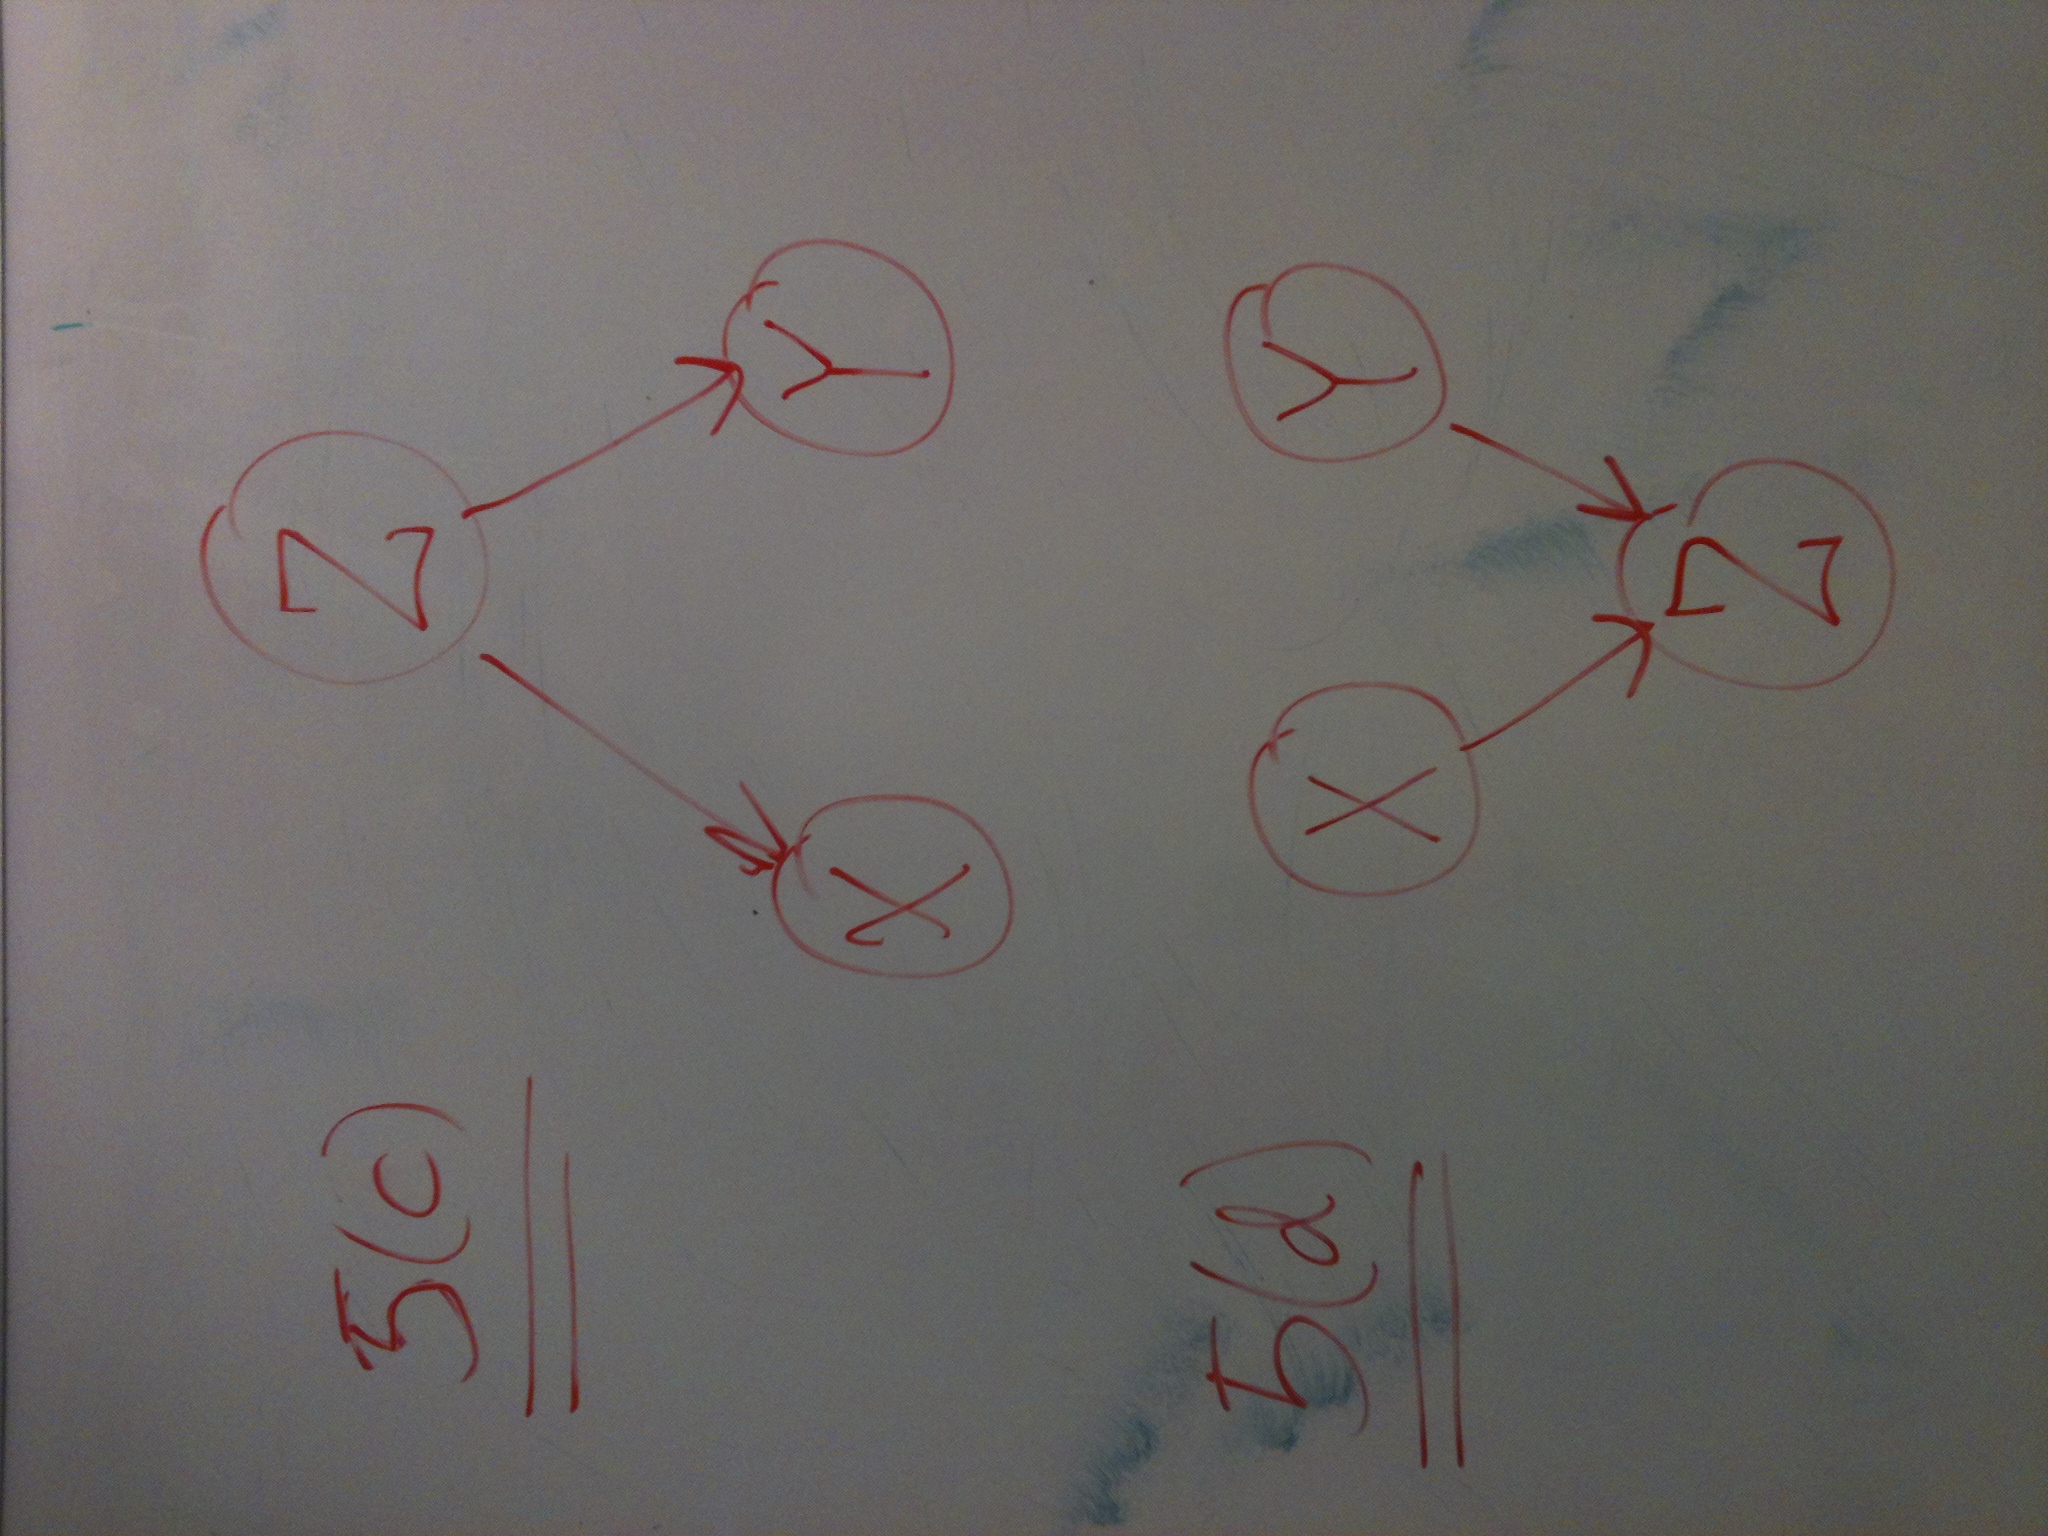 Z
5(c)
X Y
5(d) X Y
Z